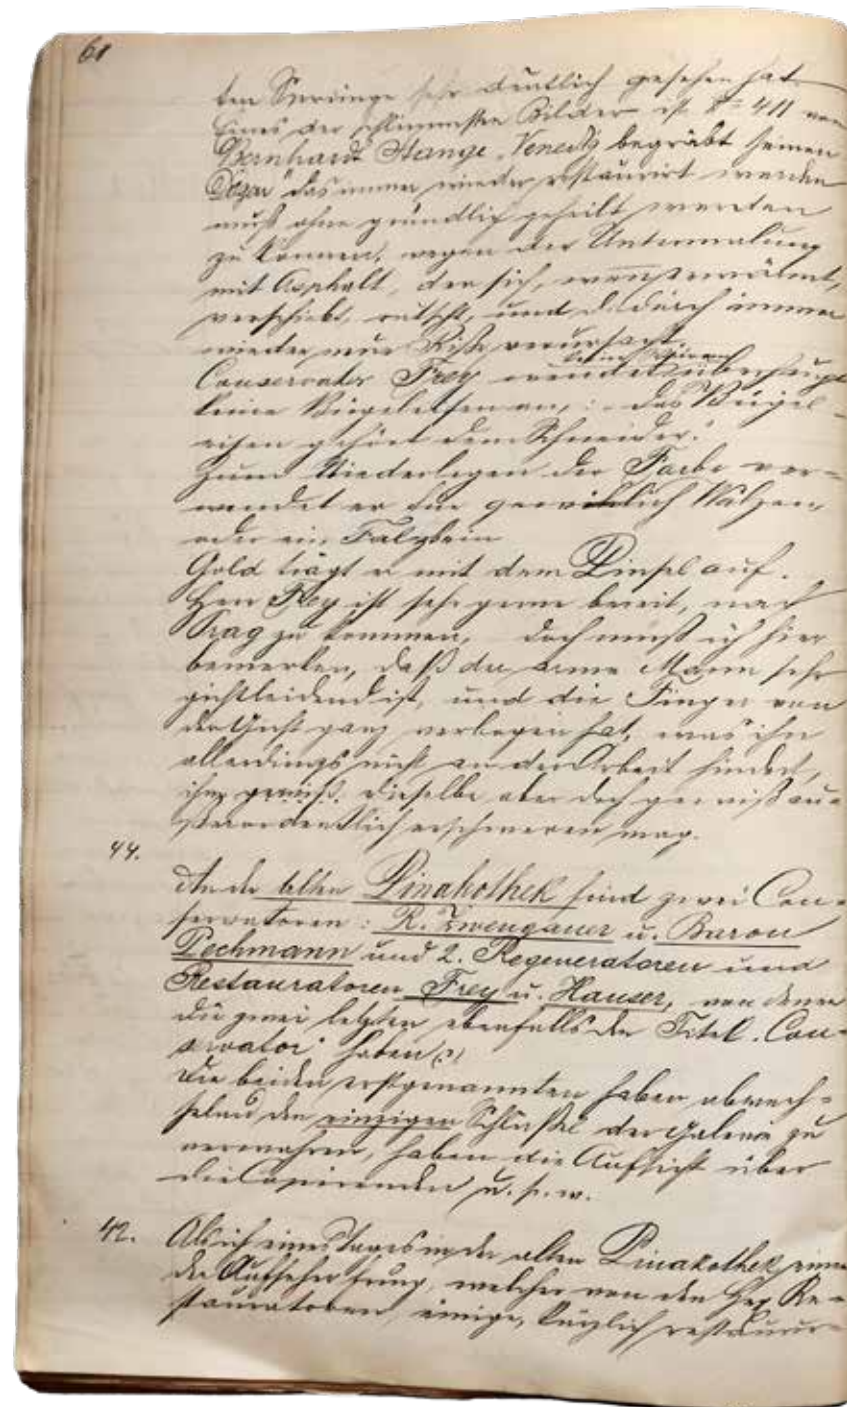 61
ten Sprünge sehr deutlich gesehen hat.
Eines der schlimmsten Bilder ist No 411 von
Bernhardt Stange „Venedig begräbt seinen
Dogen" das immer wieder restaurirt werden
muß ohne gründlich geheilt werden
zu können, wegen der Untermalung
mit Asphalt, der sich, wenn erwärmt,
verschiebt, rutscht, und dadurch immer
wieder neue Risse verursacht.
Conservator Frey wendet überhaupt
keine Bügeleisen an, : „das Bügel-
eisen gehört dem Schneider."
Zum Niederlegen der Farbe ver-
wendet er für gewöhnlich Walzen,
oder ein Falzbein
Gold trägt er mit dem Pinsel auf.
Herr Frey ist sehr gerne bereit, nach
Prag zu kommen, doch muß ich hier
bemerken, daß der arme Mann sehr
gichtleidend ist, und die Finger von
der Gicht ganz verbogen hat, was ihn
allerdings nicht an der Arbeit hindert,
ihm gewiß dieselbe aber doch gewiß au-
ßerordentlich erschweren mag.
44.
An der alten Pinakothek sind zwei Con-
servatoren : R. Zwengauer u. Baron
Pechmann und 2. Regeneratoren und
Restauratoren Frey u. Hauser, von denen
die zwei letzten ebenfalls den Titel „Con-
servator" haben (?)
Die beiden erstgenannten haben abwech-
selnd den einzigen Schlüssel der Galerie zu
verwahren, haben die Aufsicht über
die Copirenden u. s. w.
42. Als ich eines Tages in der alten Pinakothek einen
der Aufseher frug, welcher von den Hex Re-
stauratoren einige, kürzlich restaurir-